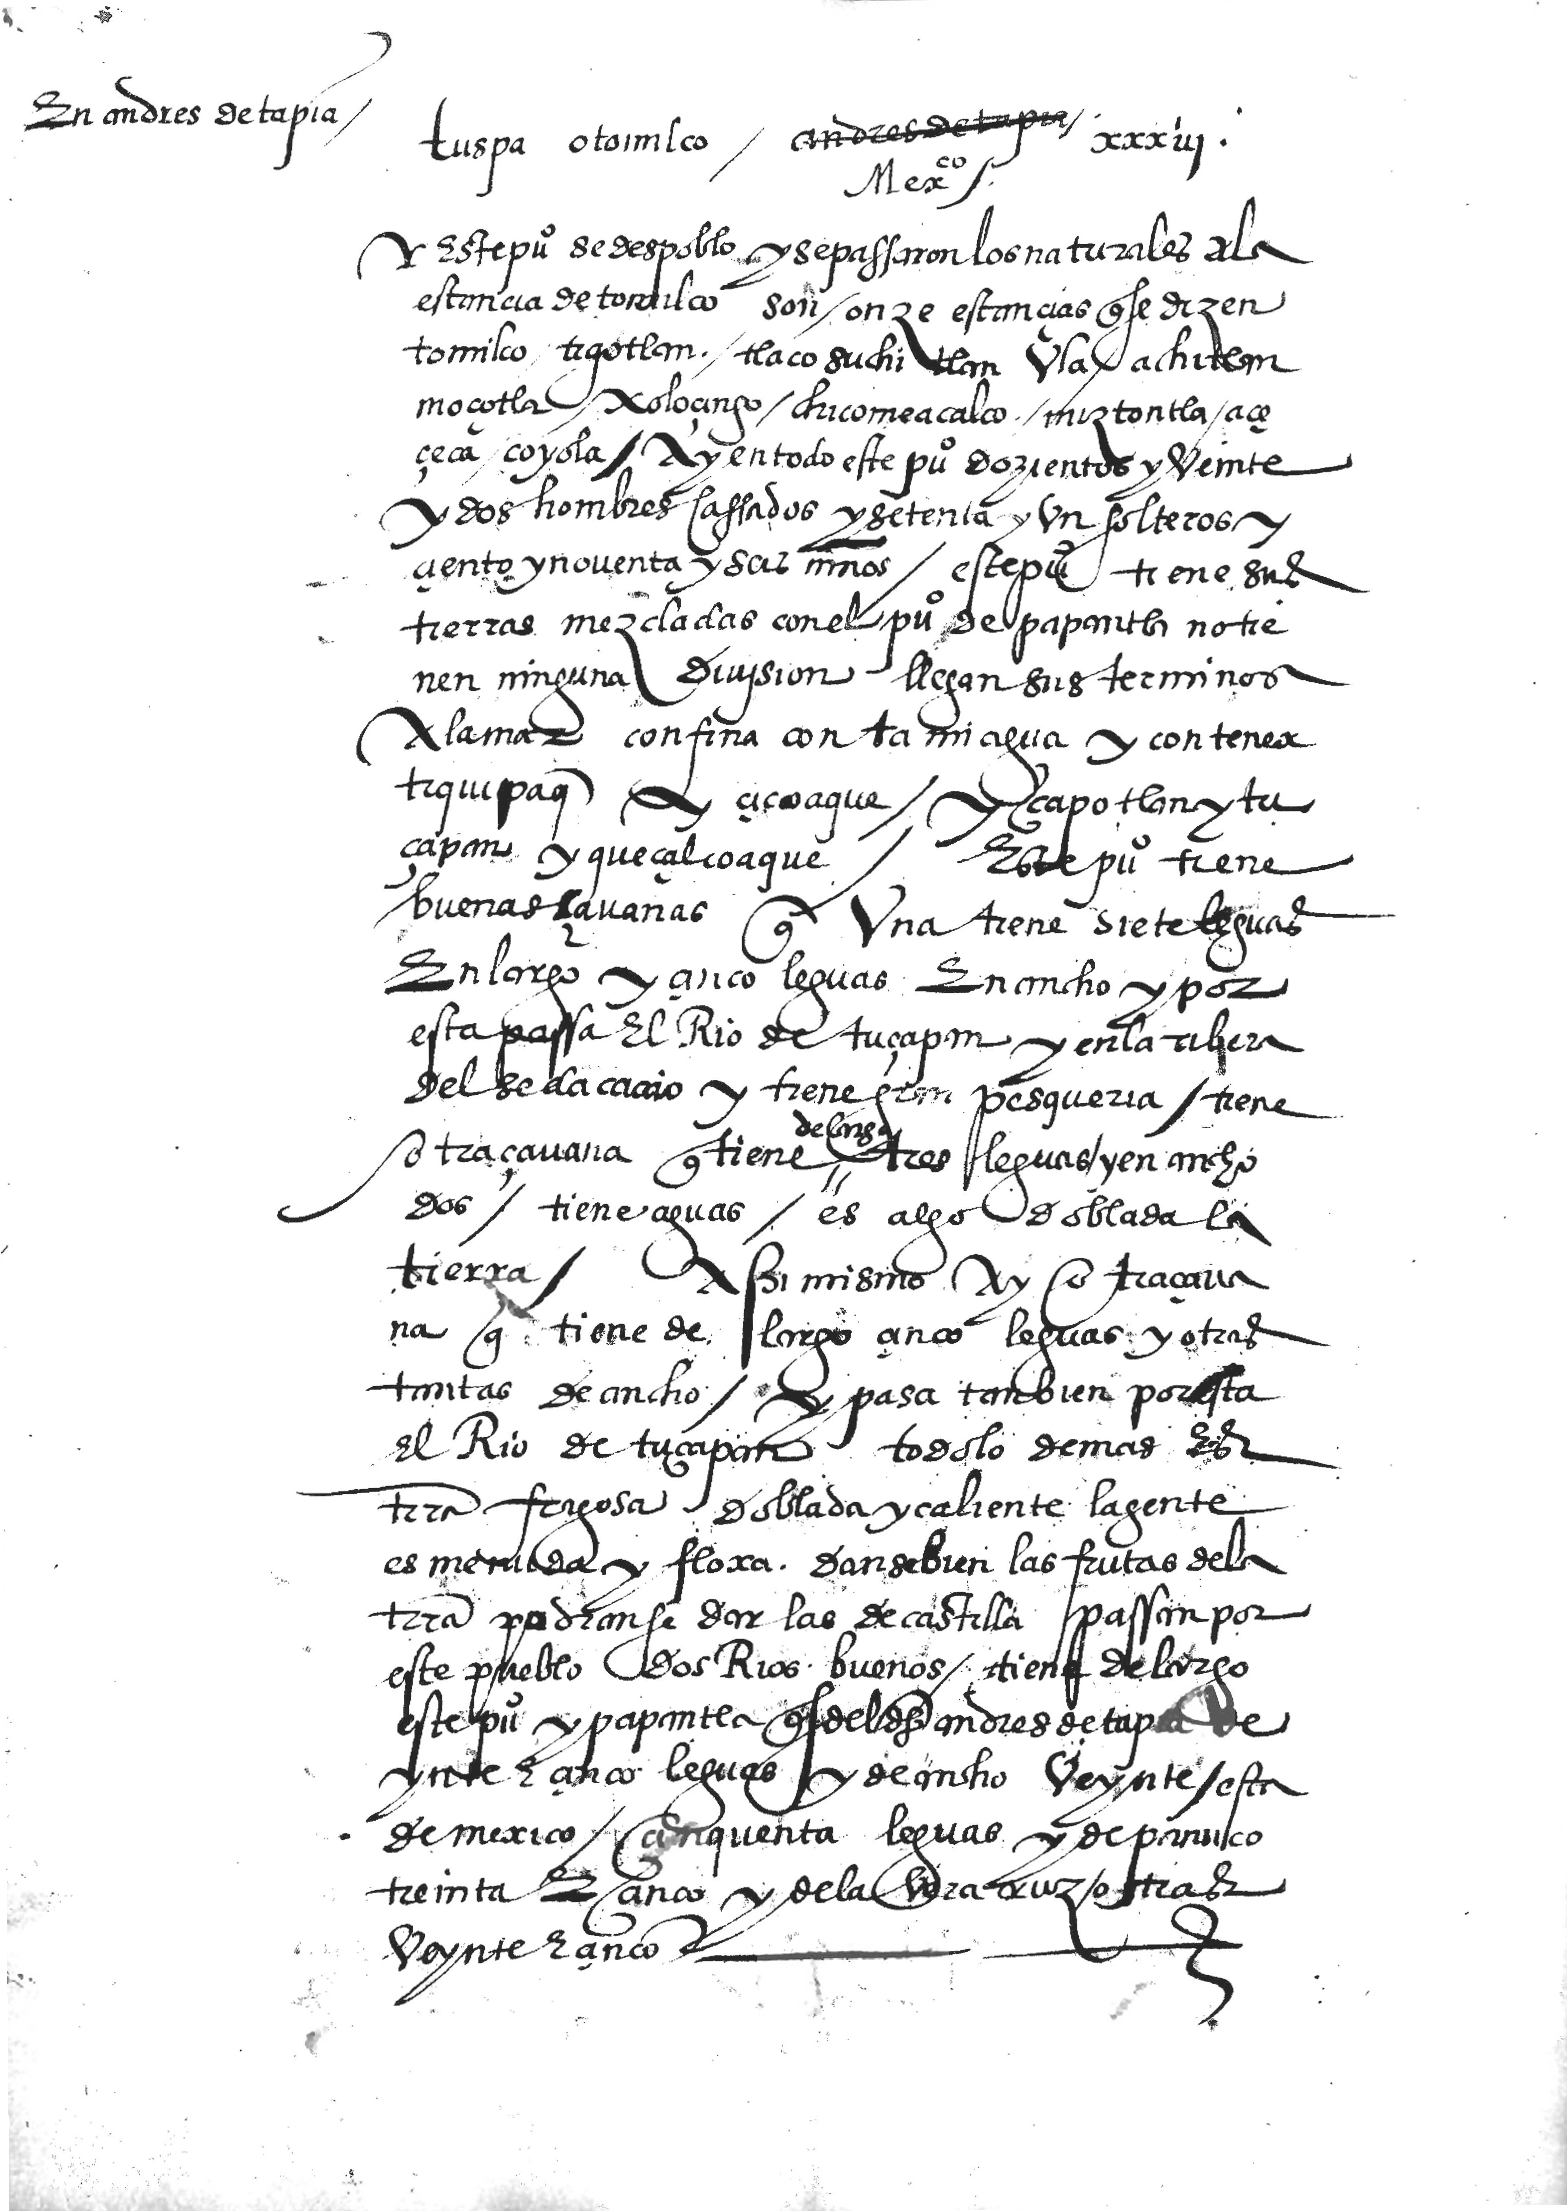 En andres de tapia /
tuspa otomilco / andres de tapia / xxxiij .
Mexco /.
Y Este puo se despoblo y se passaron los naturales a la
estancia de tomilco son / onze estancias q se dizen
tomilco / tiçotlan . / tlaco suchi tlan Vla / achitlan
moçotla / Xoloçingo / chicomeacalco . / miztontla / açe
çeca / coyola / Ay en todo este puo dozientos y Veinte
y dos hombres cassados y setenta y Vn solteros y
çiento y noventa y seis niños / este puo tiene sus
tierras mezcladas con el puo de papantla no tie
nen ninguna diuision llegan sus terminos
A la mar confina con ta mi agua y con tenex
tiquipaq y açoaque / y çapotlan y tu
çapan y queçalcoaque / Este puo tiene
buenas çauanas q Vna tiene siete leguas
En largo y çinco leguas En ancho y por
esta passa El Rio de tuçapan y en la ribera
del se da cacao y tiene gran pesqueria / tiene
otra çauana q tiene de largo tres leguas / y en ancho
dos / tiene aguas / es algo doblada la
tierra / Assi mismo Ay otra çaua
na q tiene de largo çinco leguas y otras
tantas de ancho / y pasa tanbien por esta
El Rio de tuçapan todo lo demas Es
trra fragosa doblada y caliente la gente
es menuda y floxa . danse bien las frutas de la
trra podranse dar las de castilla passan por
este pueblo dos Rios buenos / tiene de largo
este puo y papantla q es del dho andres de tapia Ve
ynte E çinco leguas y de ancho Veynte / esta
de mexico / çinquenta leguas y de panuco
treinta E çinco y de la Vera cruz / otras
Veynte E çinco